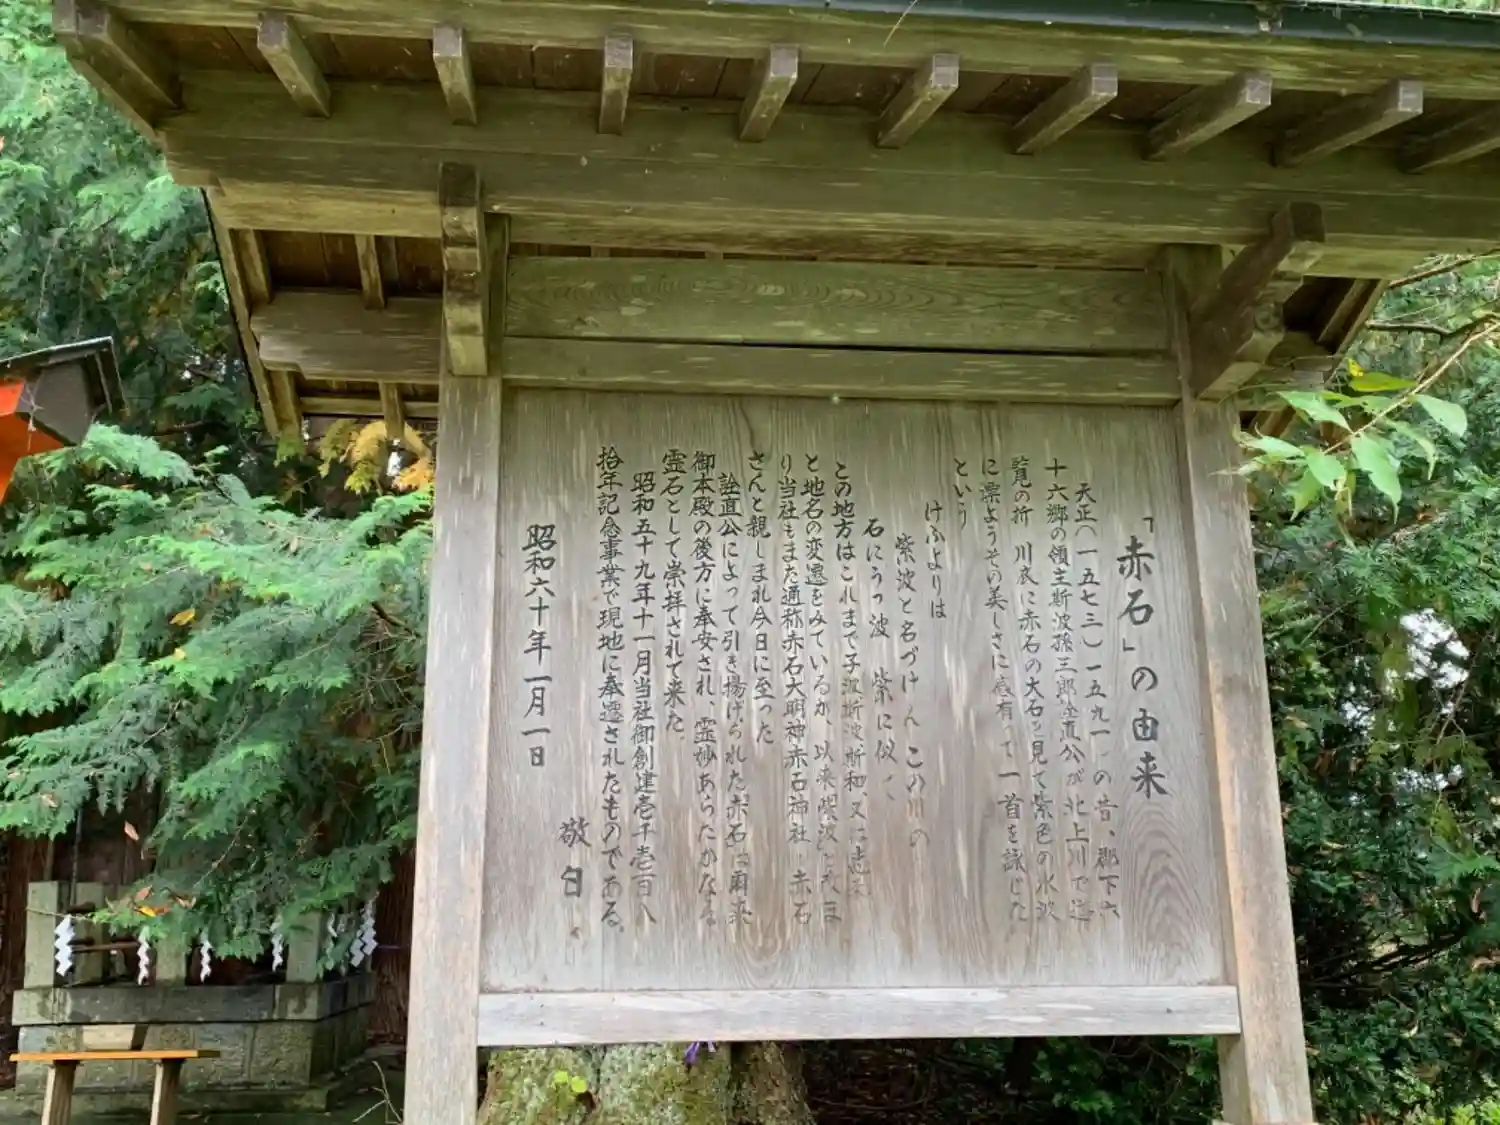 「赤石」の由来
天正(一五七三)一五九一の昔、郡下六
十六郷の領主斯波孫三郎詮直公が北上川で遊
覧の折 川衣に赤石の大石を見て紫色の水波
に漂ようその美しさに感有って一首を詠じた
という
けふよりは
紫波と名づけんこの川の
石にうつ波 紫に似て
この地方はこれまで子波斯波斯和又は志
と地名の変遷をみているが、以来紫波と
り当社もまた通称赤石大明神赤石神社 赤石
さんと親しまれ今日に至った
詮直公によって引き揚げられた赤石は爾来
御本殿の後方に奉安され、霊妙あらたかなる
霊石として崇拝されて来た。
昭和五十九年十一月当社御創建壱千壱百八
拾年記念事業で現地に奉遷されたものである。
昭和六十年一月一日
敬白